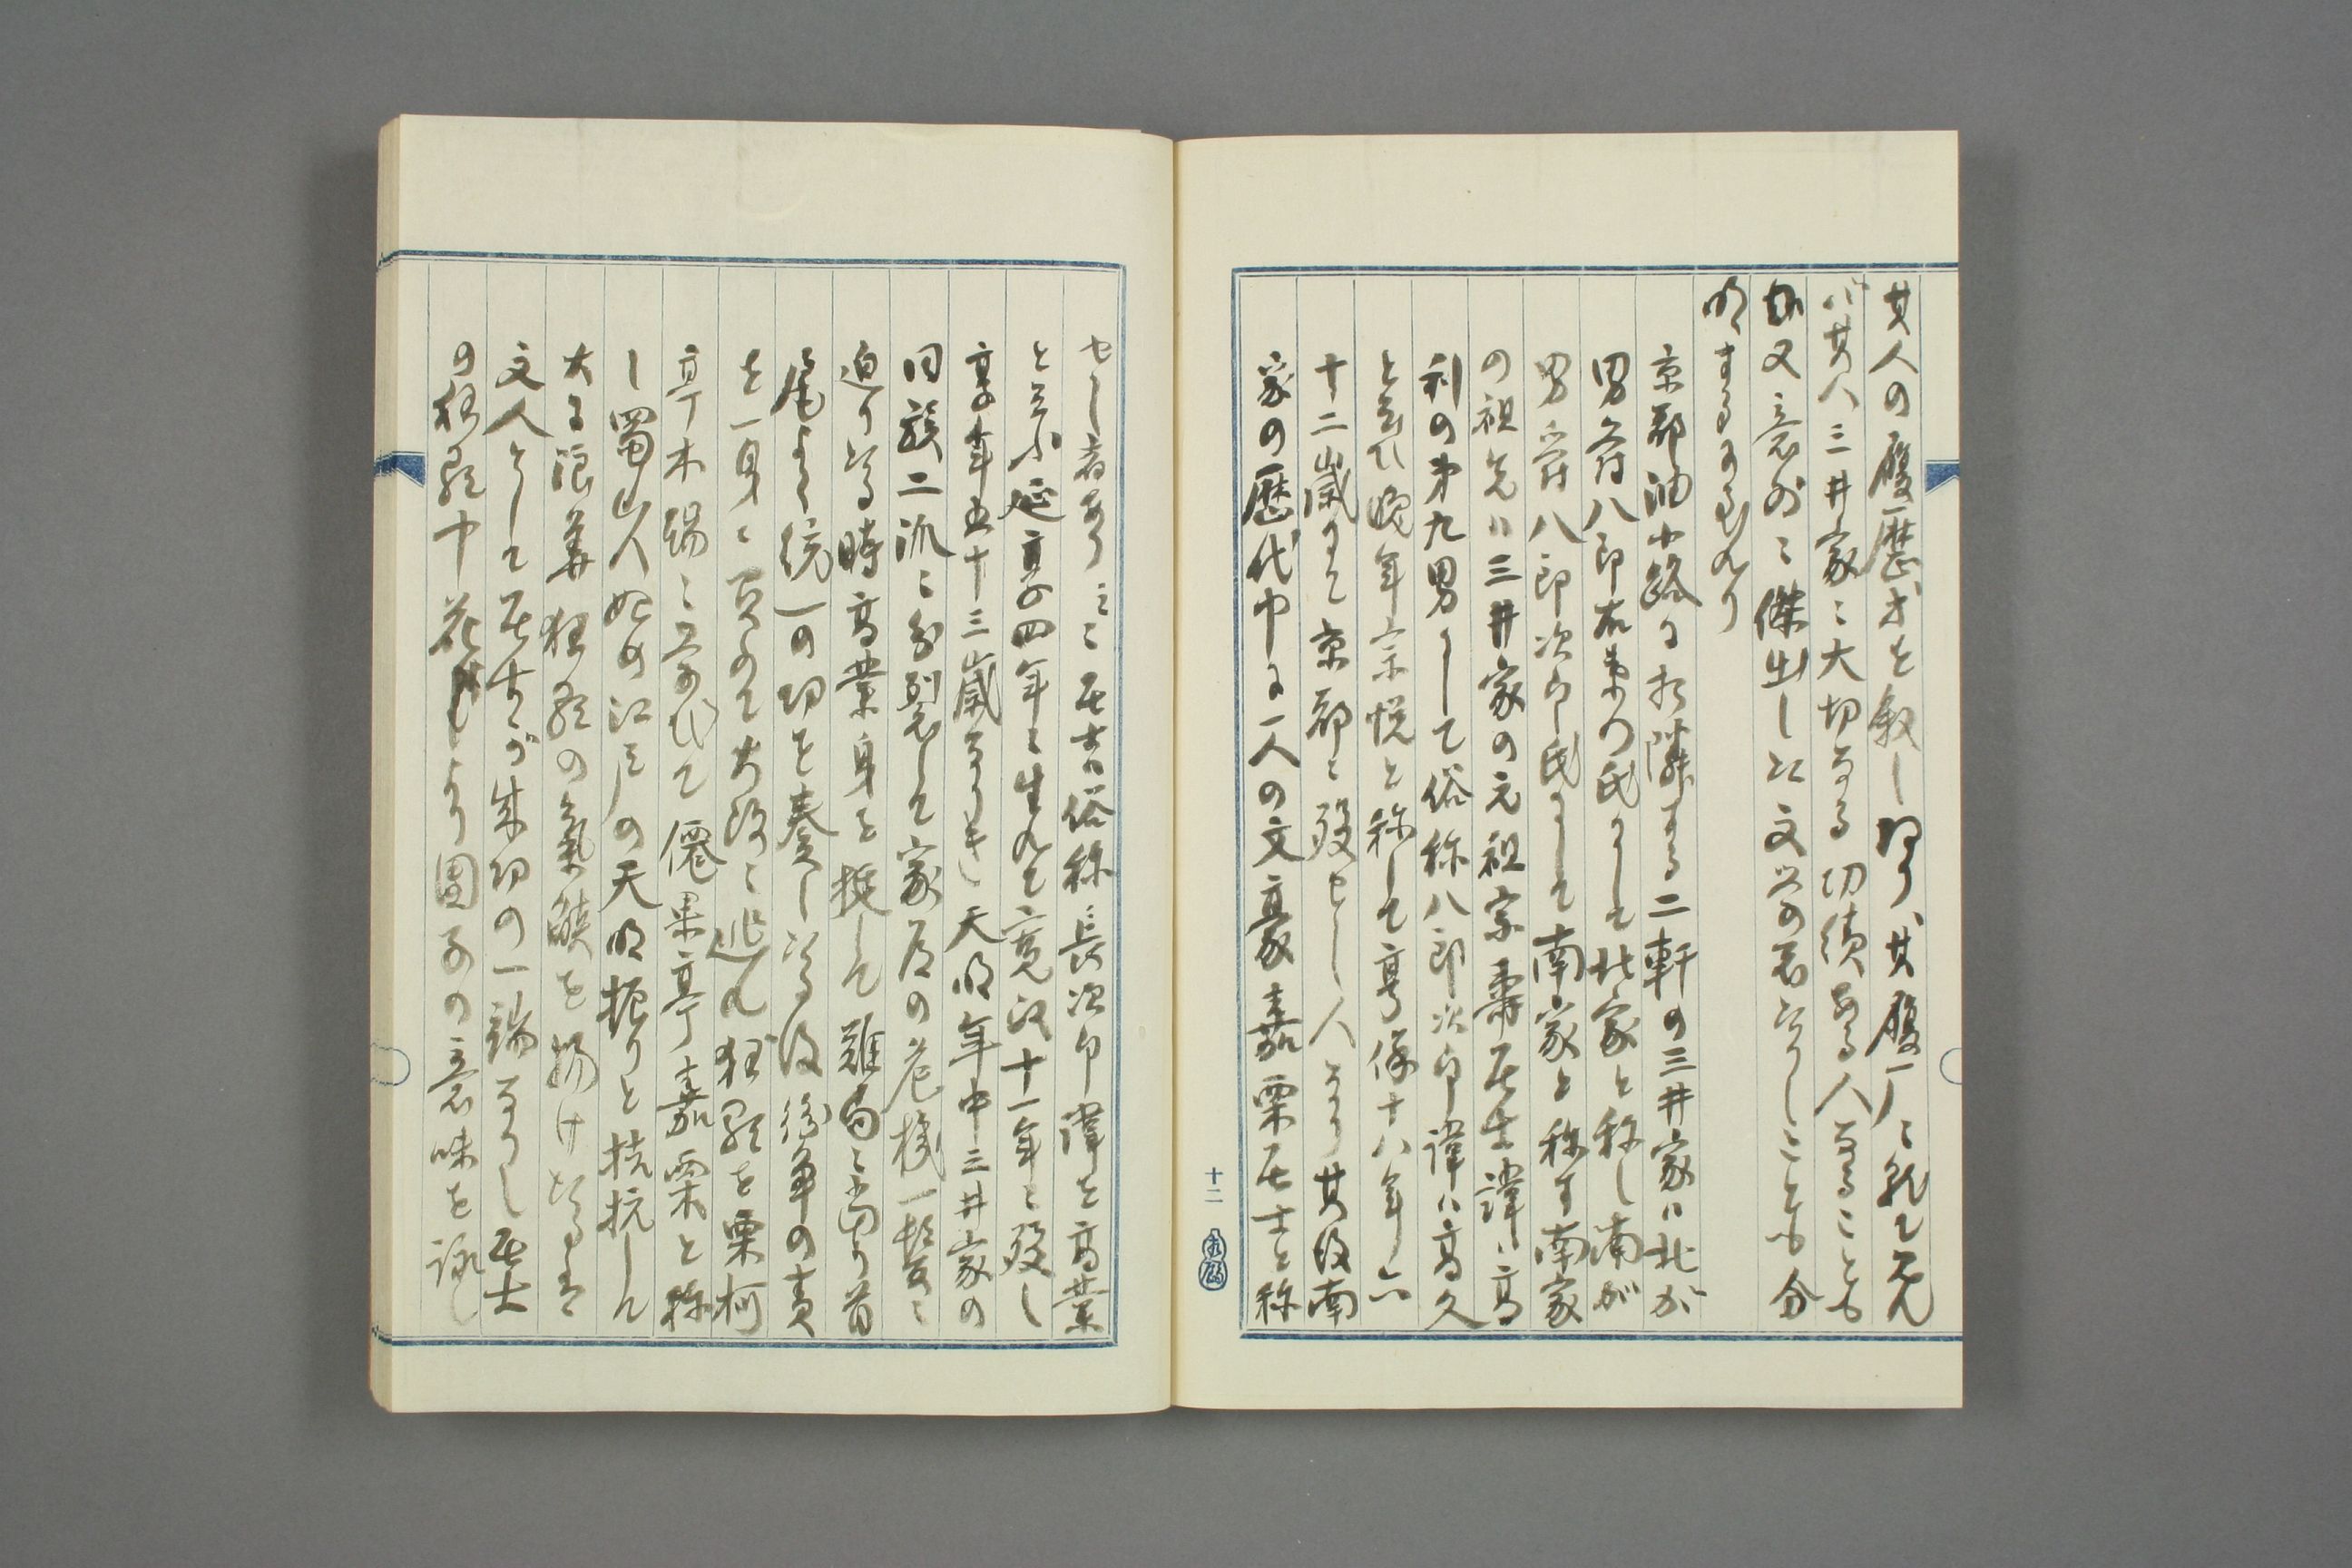 其人の履歴才を叙しあり、其履厂に就て見れ
バ其人三井家に大切なる功績ある人なることも
如又意外に傑出し江文学の者なりしことも分
明するに至れり
京都油小路に相隣する二軒の三井家ハ北が
男爵八郎右衛門氏にして北家と称し南が
男爵八郎次郎氏にして南家と称す南家
の祖先ハ三井家の元祖宗寿居士諱ハ高
利の第九男にして俗称八郎次郎諱ハ高久
と云ひ晩年宗悦と称して享保十八年六
十二歳にて京都に歿せし人なり其後南
家の歴代中に一人の文豪嘉栗居士と称
十二
せし者あり之に居士俗称長次郎諱を高業
と云ふ延享四年に生れて寛政十一年に歿し
享年五十三歳なりき天明年中三井家の
同族二派に分裂して家居の危機一髪に
迫りたる時高業身を挺して難局に当り首
尾よく統一の功を奏したる後紛争の責
を一身に負ふて大阪に逃れ狂歌を栗柯
亭木端に学びて僊果亭嘉栗と称
し蜀山人始め江戸の天明振りと拮抗し
大に浪華狂歌の気焔を揚げたるは
文人として居士が成功の一端なりし居士
の狂歌中花より団子の意味を詠し